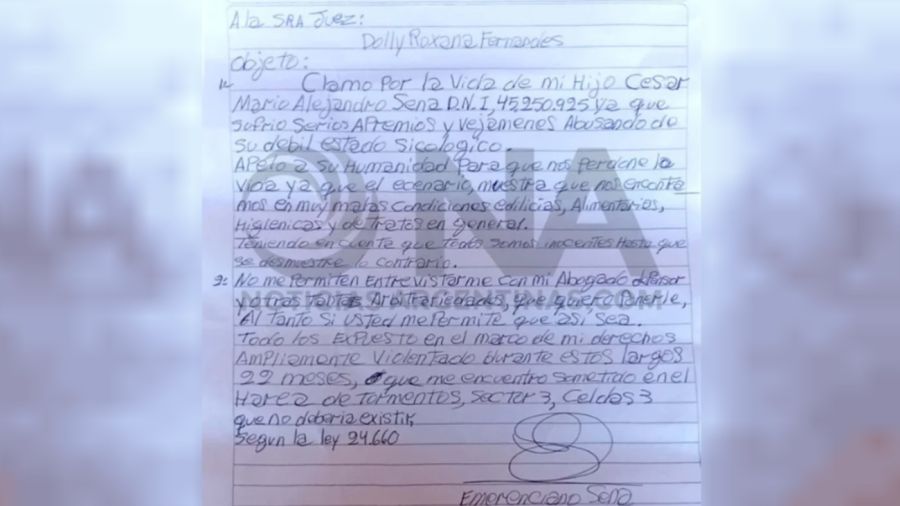 A la SRA Juez:
Dolly Roxana Fernandes
Objeto:
1- Clamo Por la Vida de mi Hijo Cesar
Mario Alejandro Sena D.N.I, 45,250,925 ya que
sufrio Serios Apremios y Vejamenes Abusando de
su debil estado Sicologico.
Apelo a Su Humanidad Para que nos Perdone la
Vida ya que el ecenario, muestra que nos encontra
mos en muy malas condiciones edilicias, Alimentarias,
Higienicas y de tratos en General.
Teniendo en cuente que Todos Somos inocentes Hasta que
se desmuestre lo Contrario.
2- No me Permiten Entrevistarme con mi Abogado
y otras tantas Arbitrariedades, que quiero Ponerle,
Al Tanto Si Usted me Permite que asi Sea.
Todo los EXPuesto en el marco de mi derechos
Ampliamente Violentado durante estos largos
22 meses, que me encuentro Sometido en el
Harea de Tormentos, Sector 3, Celdas 3
que no deberia existir,
Segun la ley 24.660
Emerenciano Sena
NA